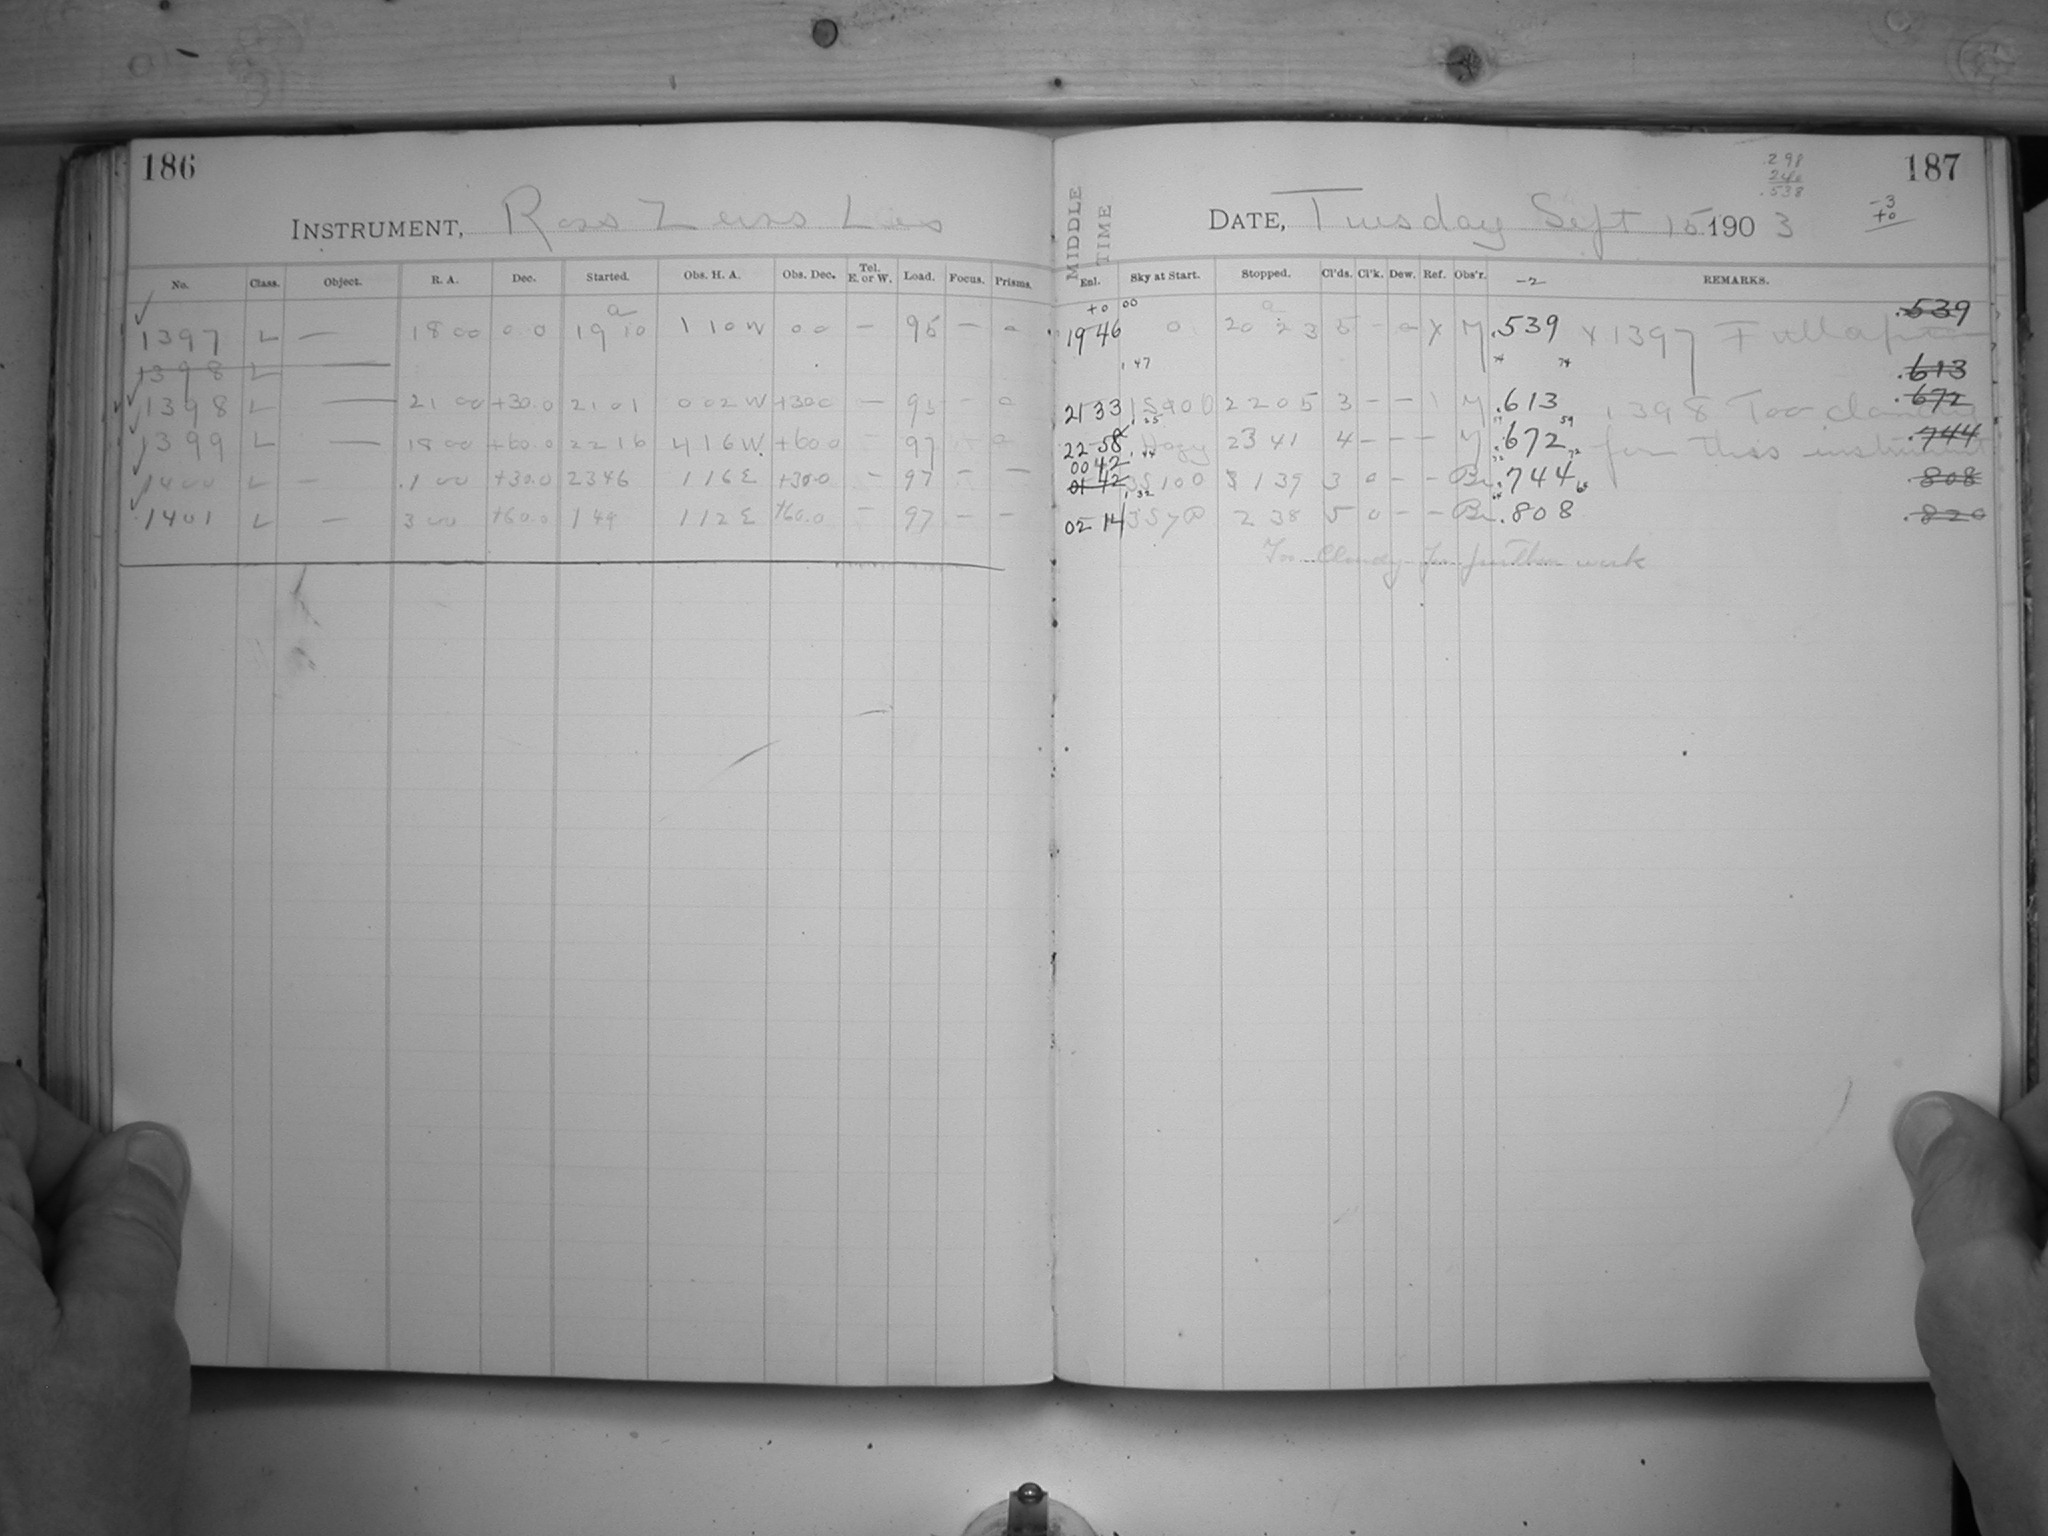 186
INSTRUMENT, Ross Zeiss Lens
No. Class. Object. R. A. Dec. Started. Obs. H. A. Obs. Dec. Tel. E. or W. Load. Focus. Prisms.
1397 L — 18 00 0 0 19 10 1 10 W 0 0 — 95 — 0
1398 L
1398 L — 21 00 +30.0 21 01 0 02 W +30 0 — 95 — 0
1399 L — 18 00 +60.0 22 16 4 16 W +60 0 — 97
1400 L — 1 00 +30.0 23 46 1 16 E +30.0 — 97 — —
1401 L — 3 00 +60.0 1 49 1 12 E +60.0 — 97 — —
187
.298
240
.538
-3
+0
MIDDLE TIME
DATE, Tuesday Sept 15 1903
Enl. Sky at Start. Stopped. Cl'ds. Cl'k. Dew. Ref. Obs'r. -2 REMARKS.
+0 00
19 46 0 20 23 5 — 0 X M .539 X 1397 Full .539
.613
21 33 22 05 3 — — 1 M .613 1398 Too cloudy .672
22 58 Hazy 23 41 4 — — — M .672 for this instrument .744
00 42
01 42 1 39 3 0 — — .744 .808
02 14 2 38 5 0 — — .808 .820
Too Cloudy for further work